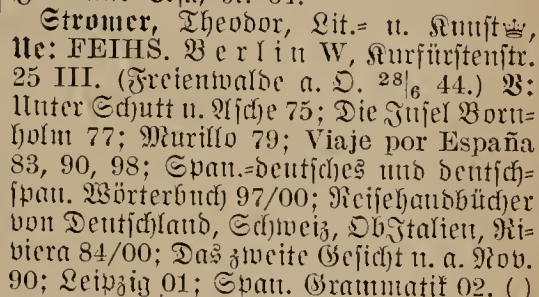 Stromer, Theodor, Lit.= u. Kunst♕,
Ue: FEIHS. Berlin W, Kurfürstenstr.
25 III. (Freienwalde a. O. 28/6 44.) V:
Unter Schutt u. Asche 75; Die Insel Born-
holm 77; Murillo 79; Viaje por España
83, 90, 98; Span.=deutsches und deutsch=
span. Wörterbuch 97/00; Reisehandbücher
von Deutschland, Schweiz, ObItalien, Ri=
viera 84/00; Das zweite Gesicht u. a. Nov.
90; Leipzig 01; Span. Grammatik 02. ( )